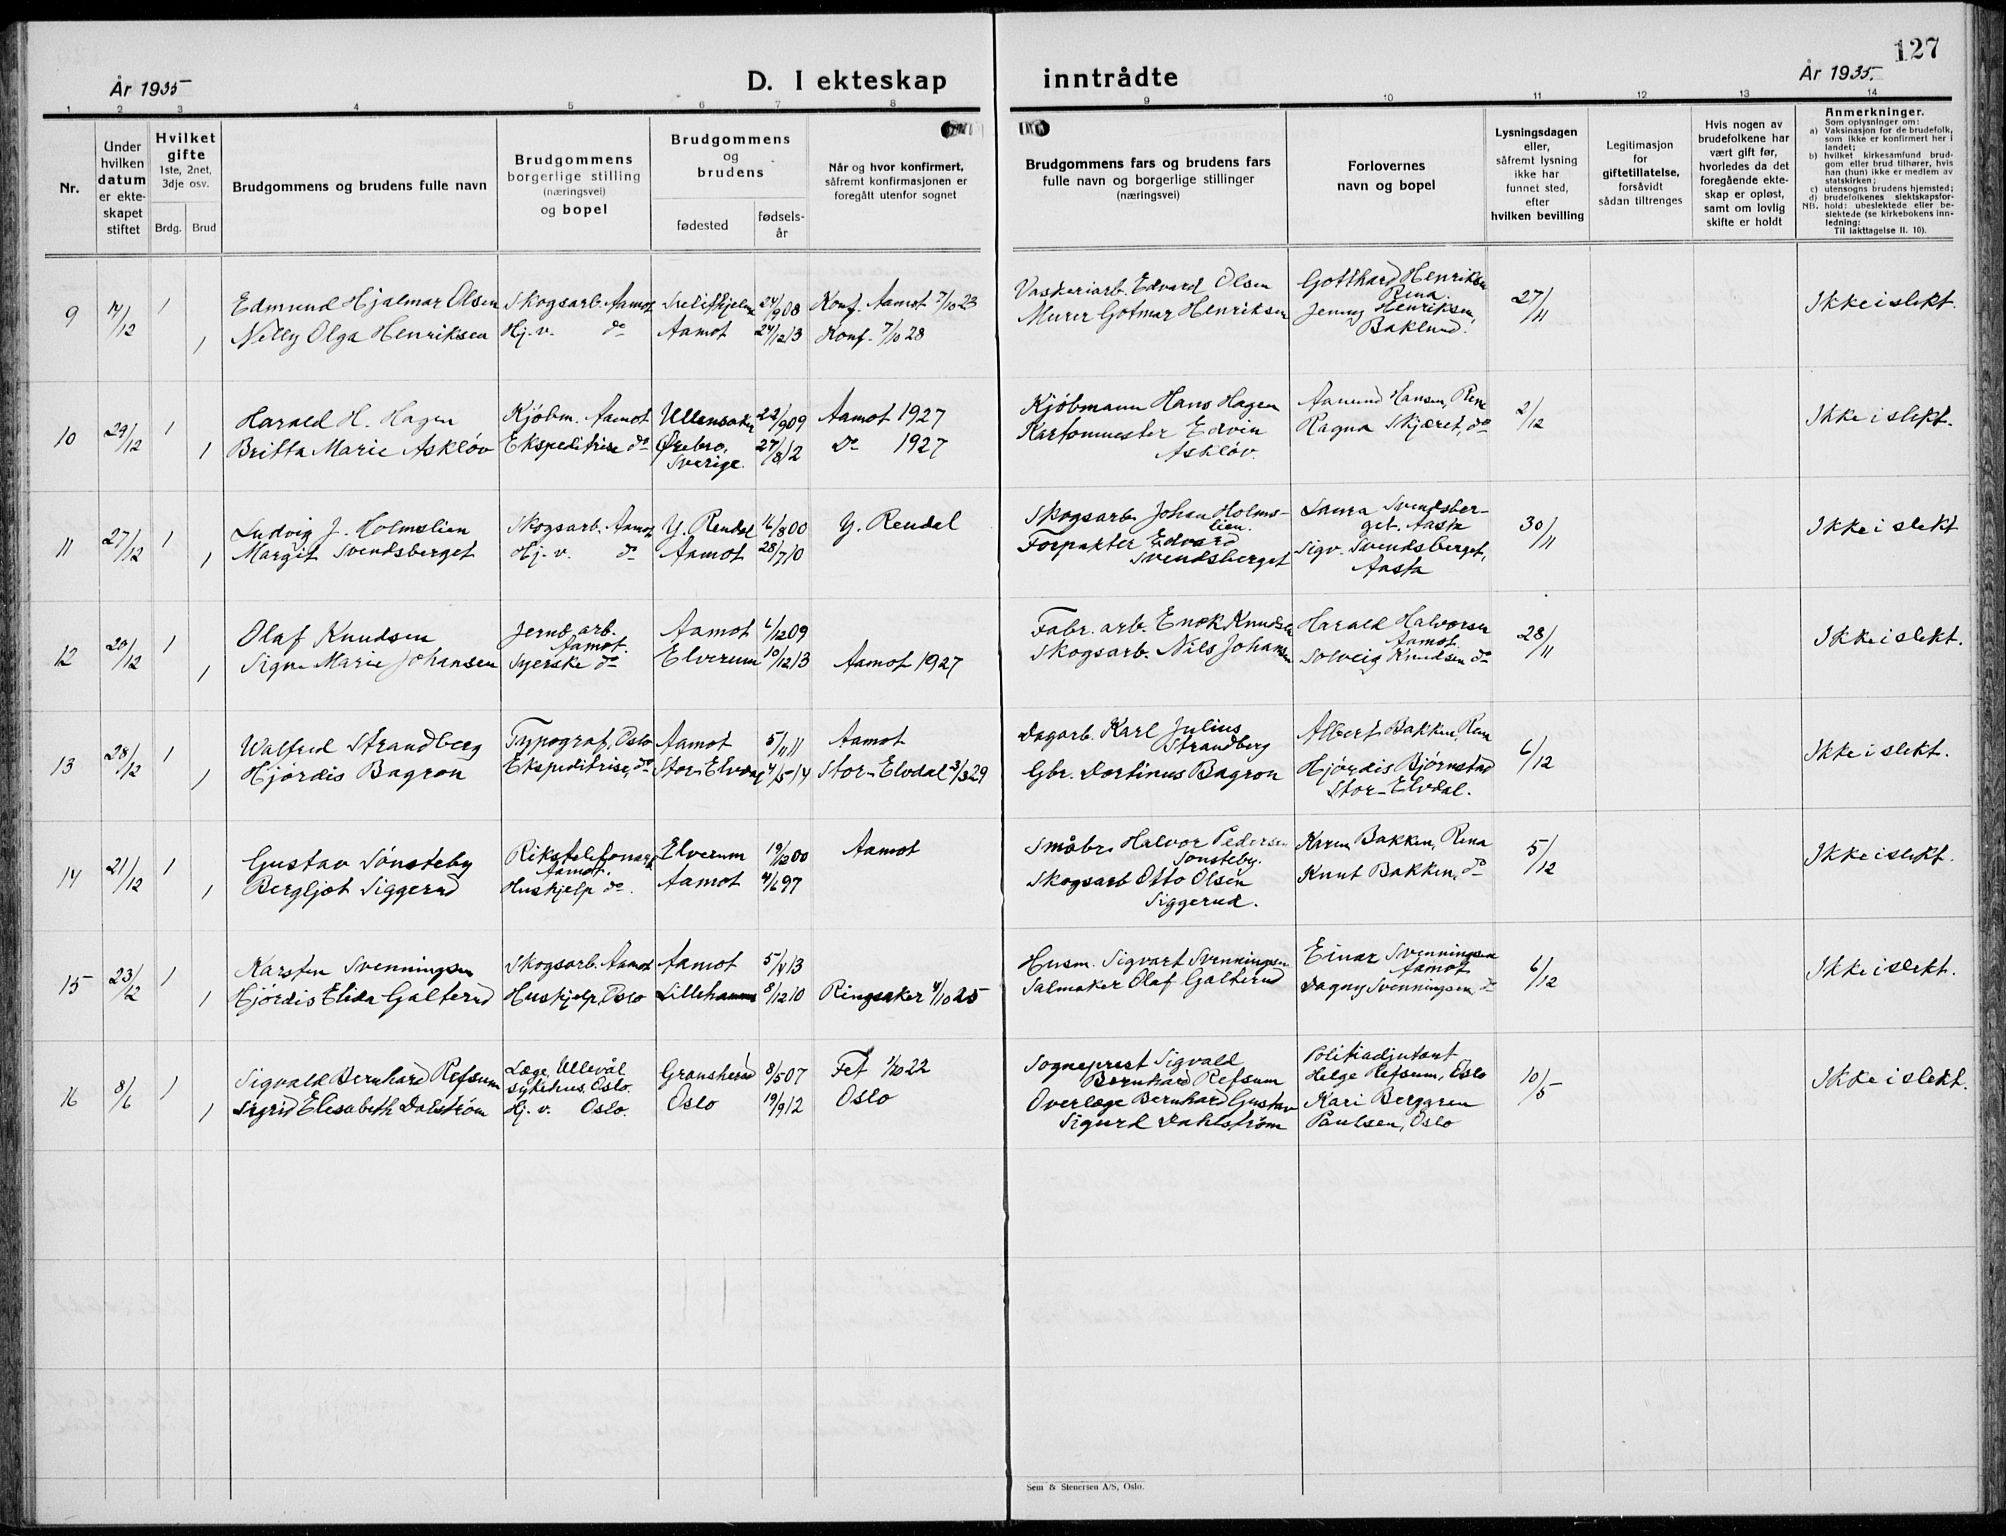 127
År 1935
D. I ekteskap inntrådte
År 1935.
1 2 3 4 5 6 7 8 9 10 11 12 13 14
Nr.
Under hvilken datum er ekte-skapet stiftet
Hvilket gifte
1ste, 2net, 3dje osv.
Brdg. Brud
Brudgommens og brudens fulle navn
Brudgommens borgerlige stilling (næringsvei) og bopel
Brudgommens og brudens
fødested
fødsels-år
Når og hvor konfirmert, såfremt konfirmasjonen er foregått utenfor sognet
Brudgommens fars og brudens fars fulle navn og borgerlige stillinger (næringsvei)
Forlovernes navn og bopel
Lysningsdagen eller, såfremt lysning ikke har funnet sted, efter hvilken bevilling
Legitimasjon for giftetillatelse, forsåvidt sådan tiltrenges
Hvis nogen av brudefolkene har vært gift før, hvorledes da det foregående ekte-skap er opløst, samt om lovlig skifte er holdt
Anmerkninger.
Som oplysninger om:
a) Vaksinasjon for de brudefolk, som ikke er konfirmert her i landet;
b) hvilket kirkesamfund brud-gom eller brud tilhører, hvis han (hun) ikke er medlem av statskirken;
c) utensogns brudens hjemsted;
d) brudefolkenes slektskapsfor-hold: ubeslektede eller be-slektede (se kirkebokens inn-ledning:
NB. Til Iakttagelse II. 10).
9 14/12 1 Edmund Hjalmar Olsen Skogsarb. Aamot 24/9 08 Konf. Aamot 7/10 23 Vaskeriarb. Edvard Olsen Gotthard Henriksen Rena. 27/11 Ikke i slekt.
1 Nelly Olga Henriksen Hj. v. do Aamot 24/12 13 Konf. 7/10 28 Murer Gotmar Henriksen Jenny Henriksen, Baklund.
10 29/12 1 Harald H. Hagen Kjøbm. Aamot Ullensaker 22/9 09 Aamot 1927 Kjøbmann Hans Hagen Aamund Hansen, Rena 2/12 Ikke i slekt.
1 Britta Marie Askløv Ekspeditrise do Ørebro, Sverige. 27/8 12 Do 1927 Kartonmester Edvin Askløv. Ragna Skjæret, do
11 27/12 1 Ludvig J. Holmslien Skogsarb. Aamot Y. Rendal 16/8 00 Y. Rendal Skogsarb. Johan Holms-lien. Laura Svendsber-get. Aasta 30/11 Ikke i slekt
1 Margit Svendsberget Hj. v. do Aamot 28/7 10 Forpakter Edvard Svendsberget Sigv. Svendsberget, Aasta
12 20/12 1 Olaf Knudsen Jernb. arb. Aamot. Aamot 6/12 09 Fabr. arb. Enok Knudsen Harald Halvorsen Aamot. 28/11 Ikke i slekt.
1 Signe Marie Johansen Syerske do Elverum 10/12 13 Aamot 1927 Skogsarb. Nils Johansen Solveig Knudsen do
13 28/12 1 Walfred Strandberg Typograf, Oslo Aamot 5/11 11 Aamot Dagarb. Karl Julius Strandberg Albert Bakken, Rena 6/12 Ikke i slekt.
1 Hjørdis Bagron Ekspeditrise, do Stor-Elvdal 4/5 14 Stor-Elvdal 3/3 29 Gbr. Dortinus Bagron Hjørdis Bjørnstad Stor-Elvdal.
14 21/12 1 Gustav Sønsteby Rikstelefonarb. Aamot. Elverum 19/12 00 Aamot Småbr. Halvor Pedersen Sønsteby. Karen Bakken, Rena 5/12 Ikke i slekt.
1 Bergljot Siggerud Huskjelp do. Aamot 4/6 97 Skogsarb Otto Olsen Siggerud. Knut Bakken, do
15 23/12 1 Karsten Svenningsen Skogsarb. Aamot Aamot 5/4 13 Husm. Sigvart Svenningsen Einar Svenningsen Aamot 6/12 Ikke i slekt.
1 Hjørdis Elida Galterud Huskjelp, Oslo Lillehammer 8/12 10 Ringsaker 4/10 25 Salmaker Olaf Galterud Dagny Svenningsen, do
16 8/6 1 Sigvald Bernhard Refsum Læge, Ullevål sykehus, Oslo. Gransherad 8/5 07 Fet 1/10 22 Sogneprest Sigvald Bernhard Refsum Politiadjutant Helge Refsum, Oslo 10/5 Ikke i slekt.
1 Sigrid Elisabeth Dalstrøm Hj. v. Oslo. Oslo 19/9 12 Oslo Overlæge Bernhard Gustav Sigurd Dahlstrøm Kari Berggren Paulsen, Oslo
Sem & Stenersen A/S, Oslo.